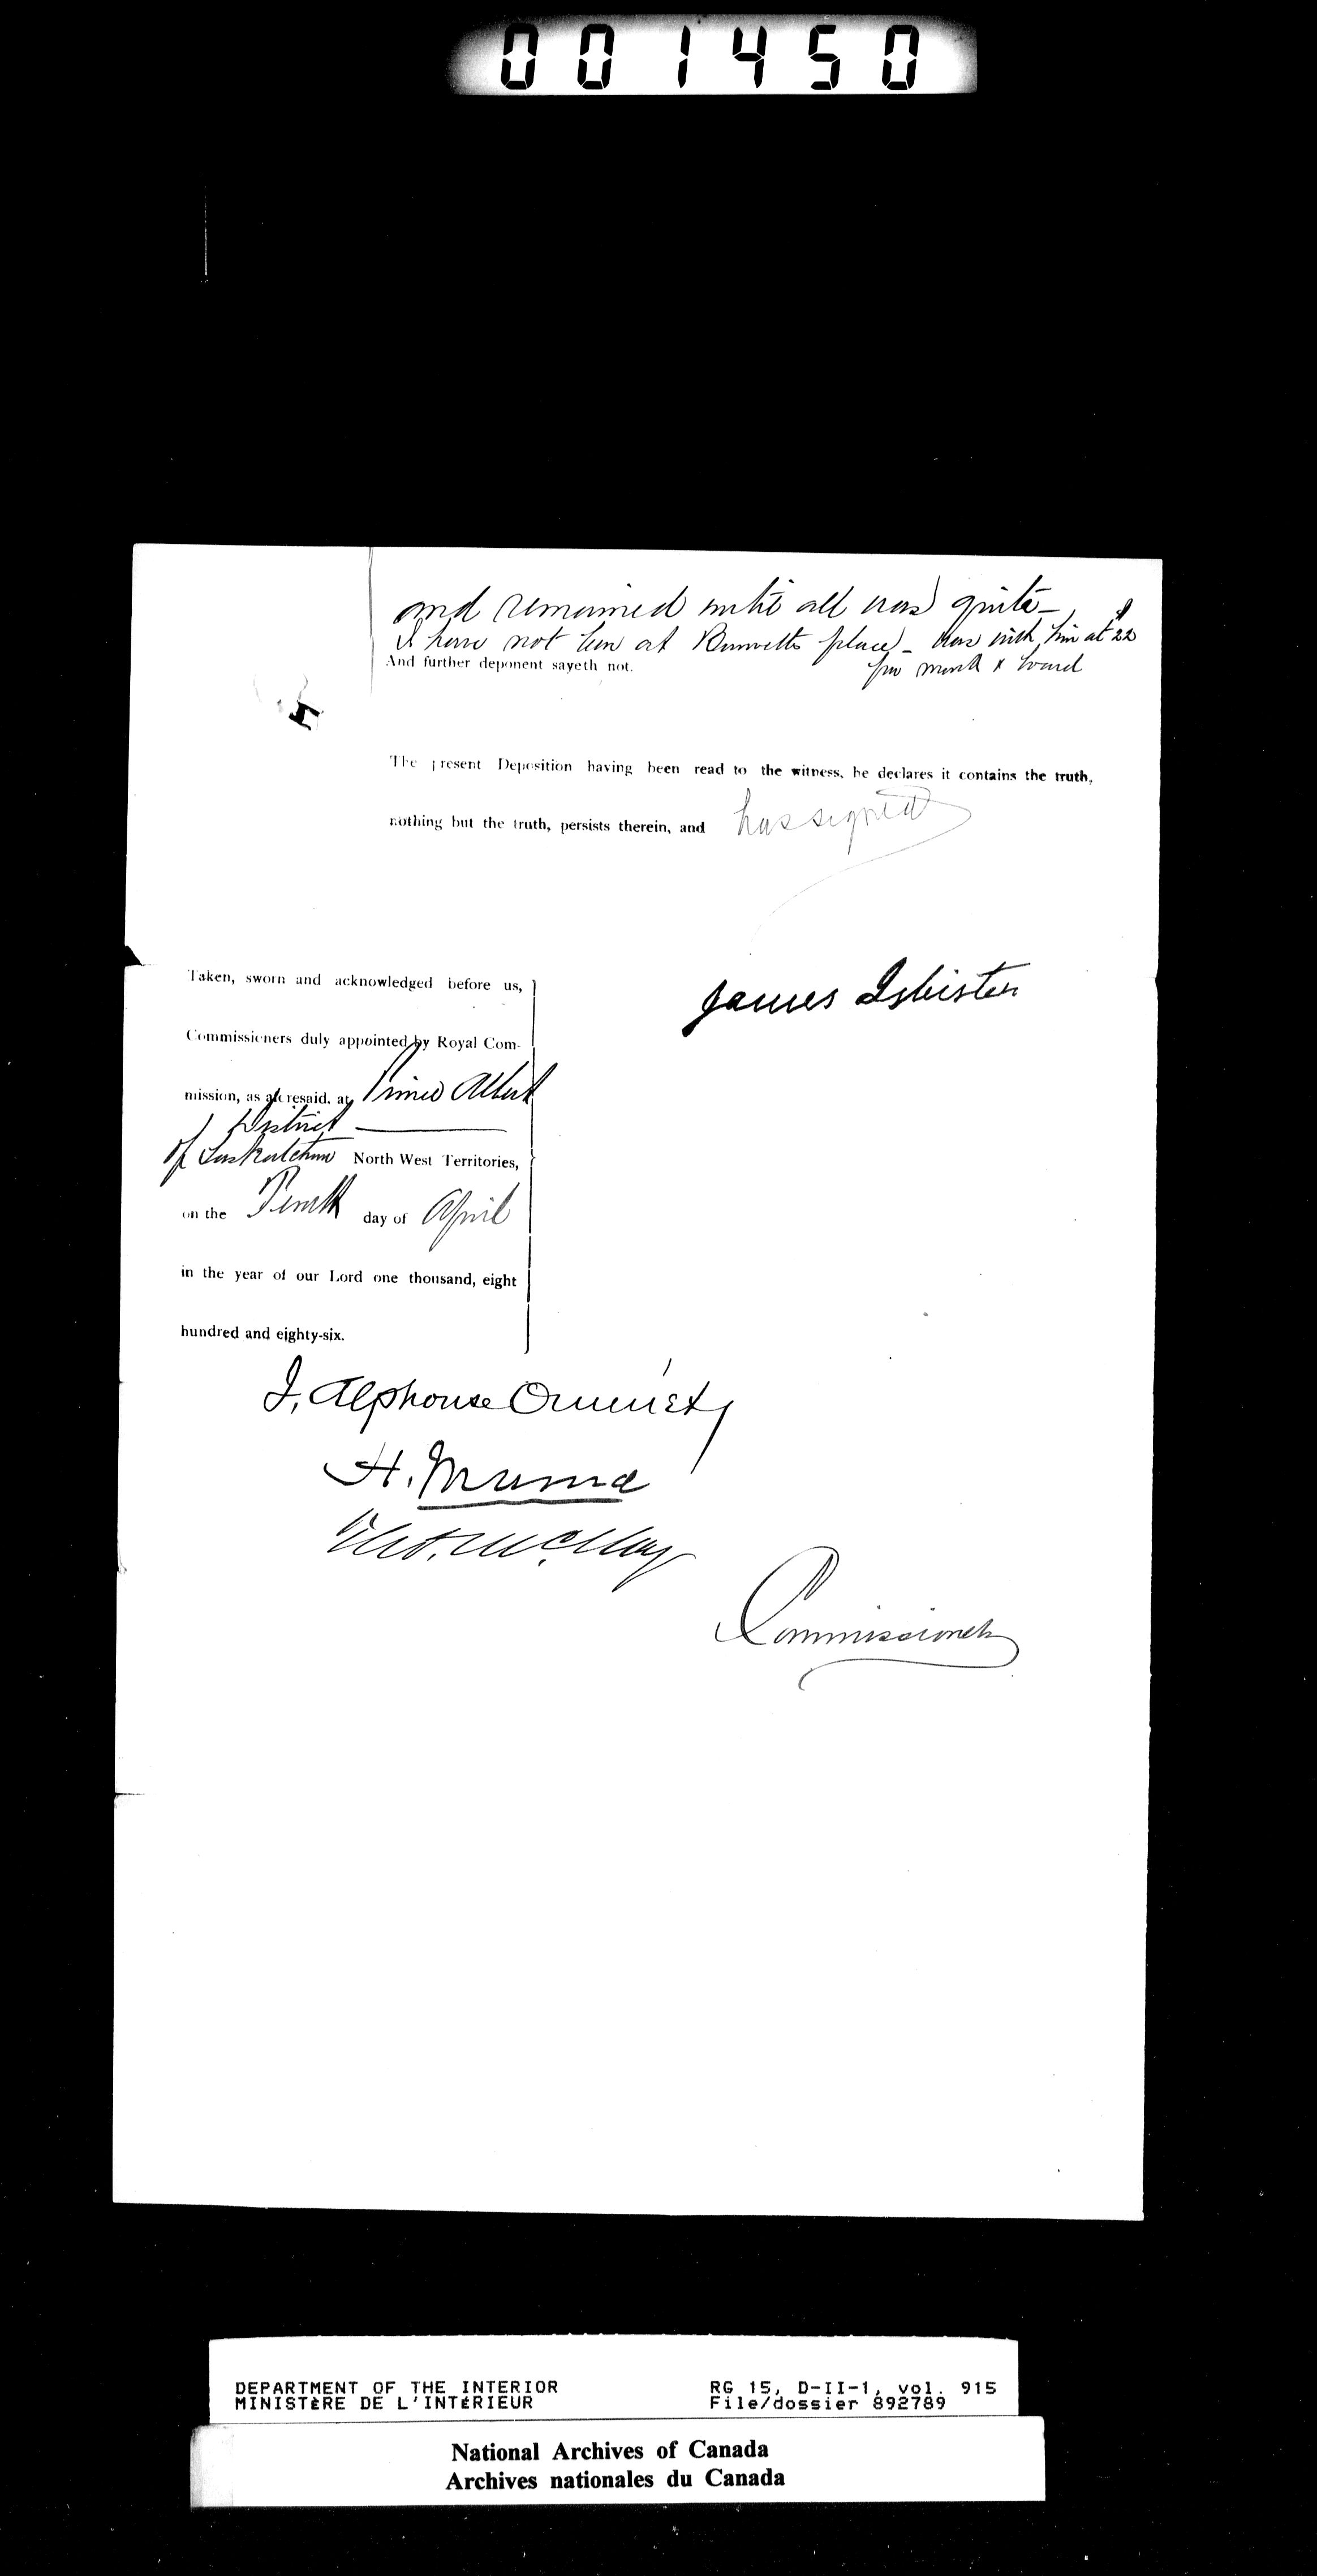 001450
and remained until all was quite -
I have not been at Burnetts place - was with him at $22
per month & board
And further deponent sayeth not.
The present Deposition having been read to the witness, he declares it contains the truth,
nothing but the truth, persists therein, and has signed
James Isbister
Taken, sworn and acknowledged before us,
Commissioners duly appointed by Royal Com-
mission, as aforesaid, at Prince Albert
District
of Saskatchewan North West Territories,
on the Tenth day of April
in the year of our Lord one thousand, eight
hundred and eighty-six.
J. Alphonse Ouimet
H. Muma
Thos. McKay
Commissioners
DEPARTMENT OF THE INTERIOR RG 15, D-II-1, vol. 915
MINISTÈRE DE L'INTÉRIEUR File/dossier 892789
National Archives of Canada
Archives nationales du Canada